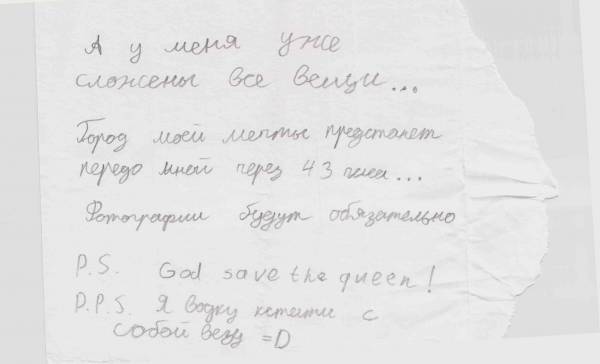 А у меня уже
сложены все вещи...
Город моей мечты предстанет
передо мной через 43 часа...
Фотографии будут обязательно
P.S. God save the queen!
P.P.S. Я водку кстати с
собой везу =D